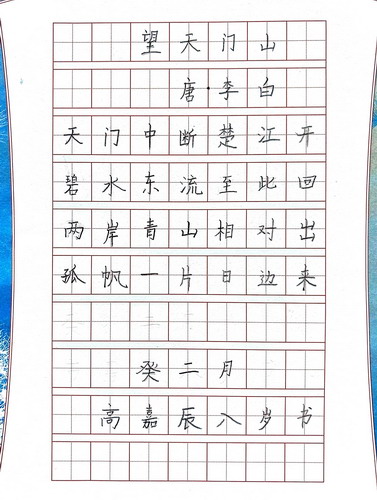 望天门山
唐·李白
天门中断楚江开
碧水东流至此回
两岸青山相对出
孤帆一片日边来
癸二月
高嘉辰八岁书